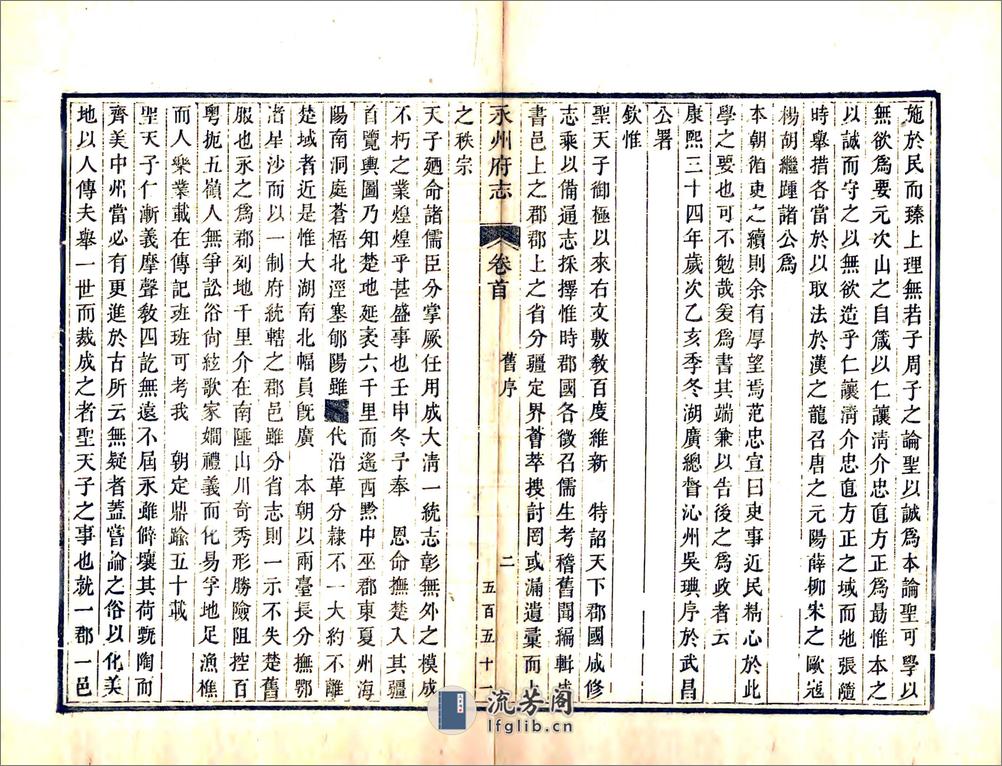 施於民而臻上理無若子周子之論聖以誠爲本論聖可學以
無欲爲要元次山之自箴以仁讓清介忠直方正爲最惟本之
以誠而守之以無欲造乎仁讓清介忠直方正之域而弛張
時舉措各當於以取法於漢之龍召唐之元陽薛柳宋之歐寇
楊胡繼踵諸公爲
本朝循吏之續則余有厚望焉范忠宣曰吏事近民精心於此
學之要也可不勉哉爰爲書其端兼以告後之爲政者云
康熙三十四年歲次乙亥季冬湖廣總督沁州吳琠序於武昌
公署
欽惟
聖天子御極以來右文敷敎百度維新 特詔天下郡國咸修
志乘以備通志採擇惟時郡國各徵召儒生考稽舊聞編輯
書邑上之郡郡上之省分疆定界薈萃搜討罔或漏遺彙而
永州府志 卷首 舊序 二 五百五十一
之秩宗
天子廼命諸儒臣分掌厥任用成大清一統志彰無外之模成
不朽之業煌煌乎甚盛事也壬申冬予奉 恩命撫楚入其疆
首覽輿圖乃知楚地延袤六千里而遙西黔中巫郡東夏州海
陽南洞庭蒼梧北涇塞郇陽雖代沿革分隸不一大約不離
楚域者近是惟大湖南北幅員旣廣 本朝以兩臺長分撫鄂
渚星沙而以一制府統轄之郡邑雖分省志則一示不失楚舊
服也永之爲郡列地千里介在南陲山川奇秀形勝險阻控百
粵扼五嶺人無爭訟俗尙絃歌家嫺禮義而化易孚地足漁樵
而人樂業載在傳記班班可考我 朝定鼎踰五十載
聖天子仁漸義摩聲敎四訖無遠不屆永雖僻壤其荷甄陶而
齊美中州當必有更進於古所云無疑者蓋嘗論之俗以化美
地以人傳夫舉一世而裁成之者聖天子之事也就一郡一邑
流芳阁
lfglib.cn